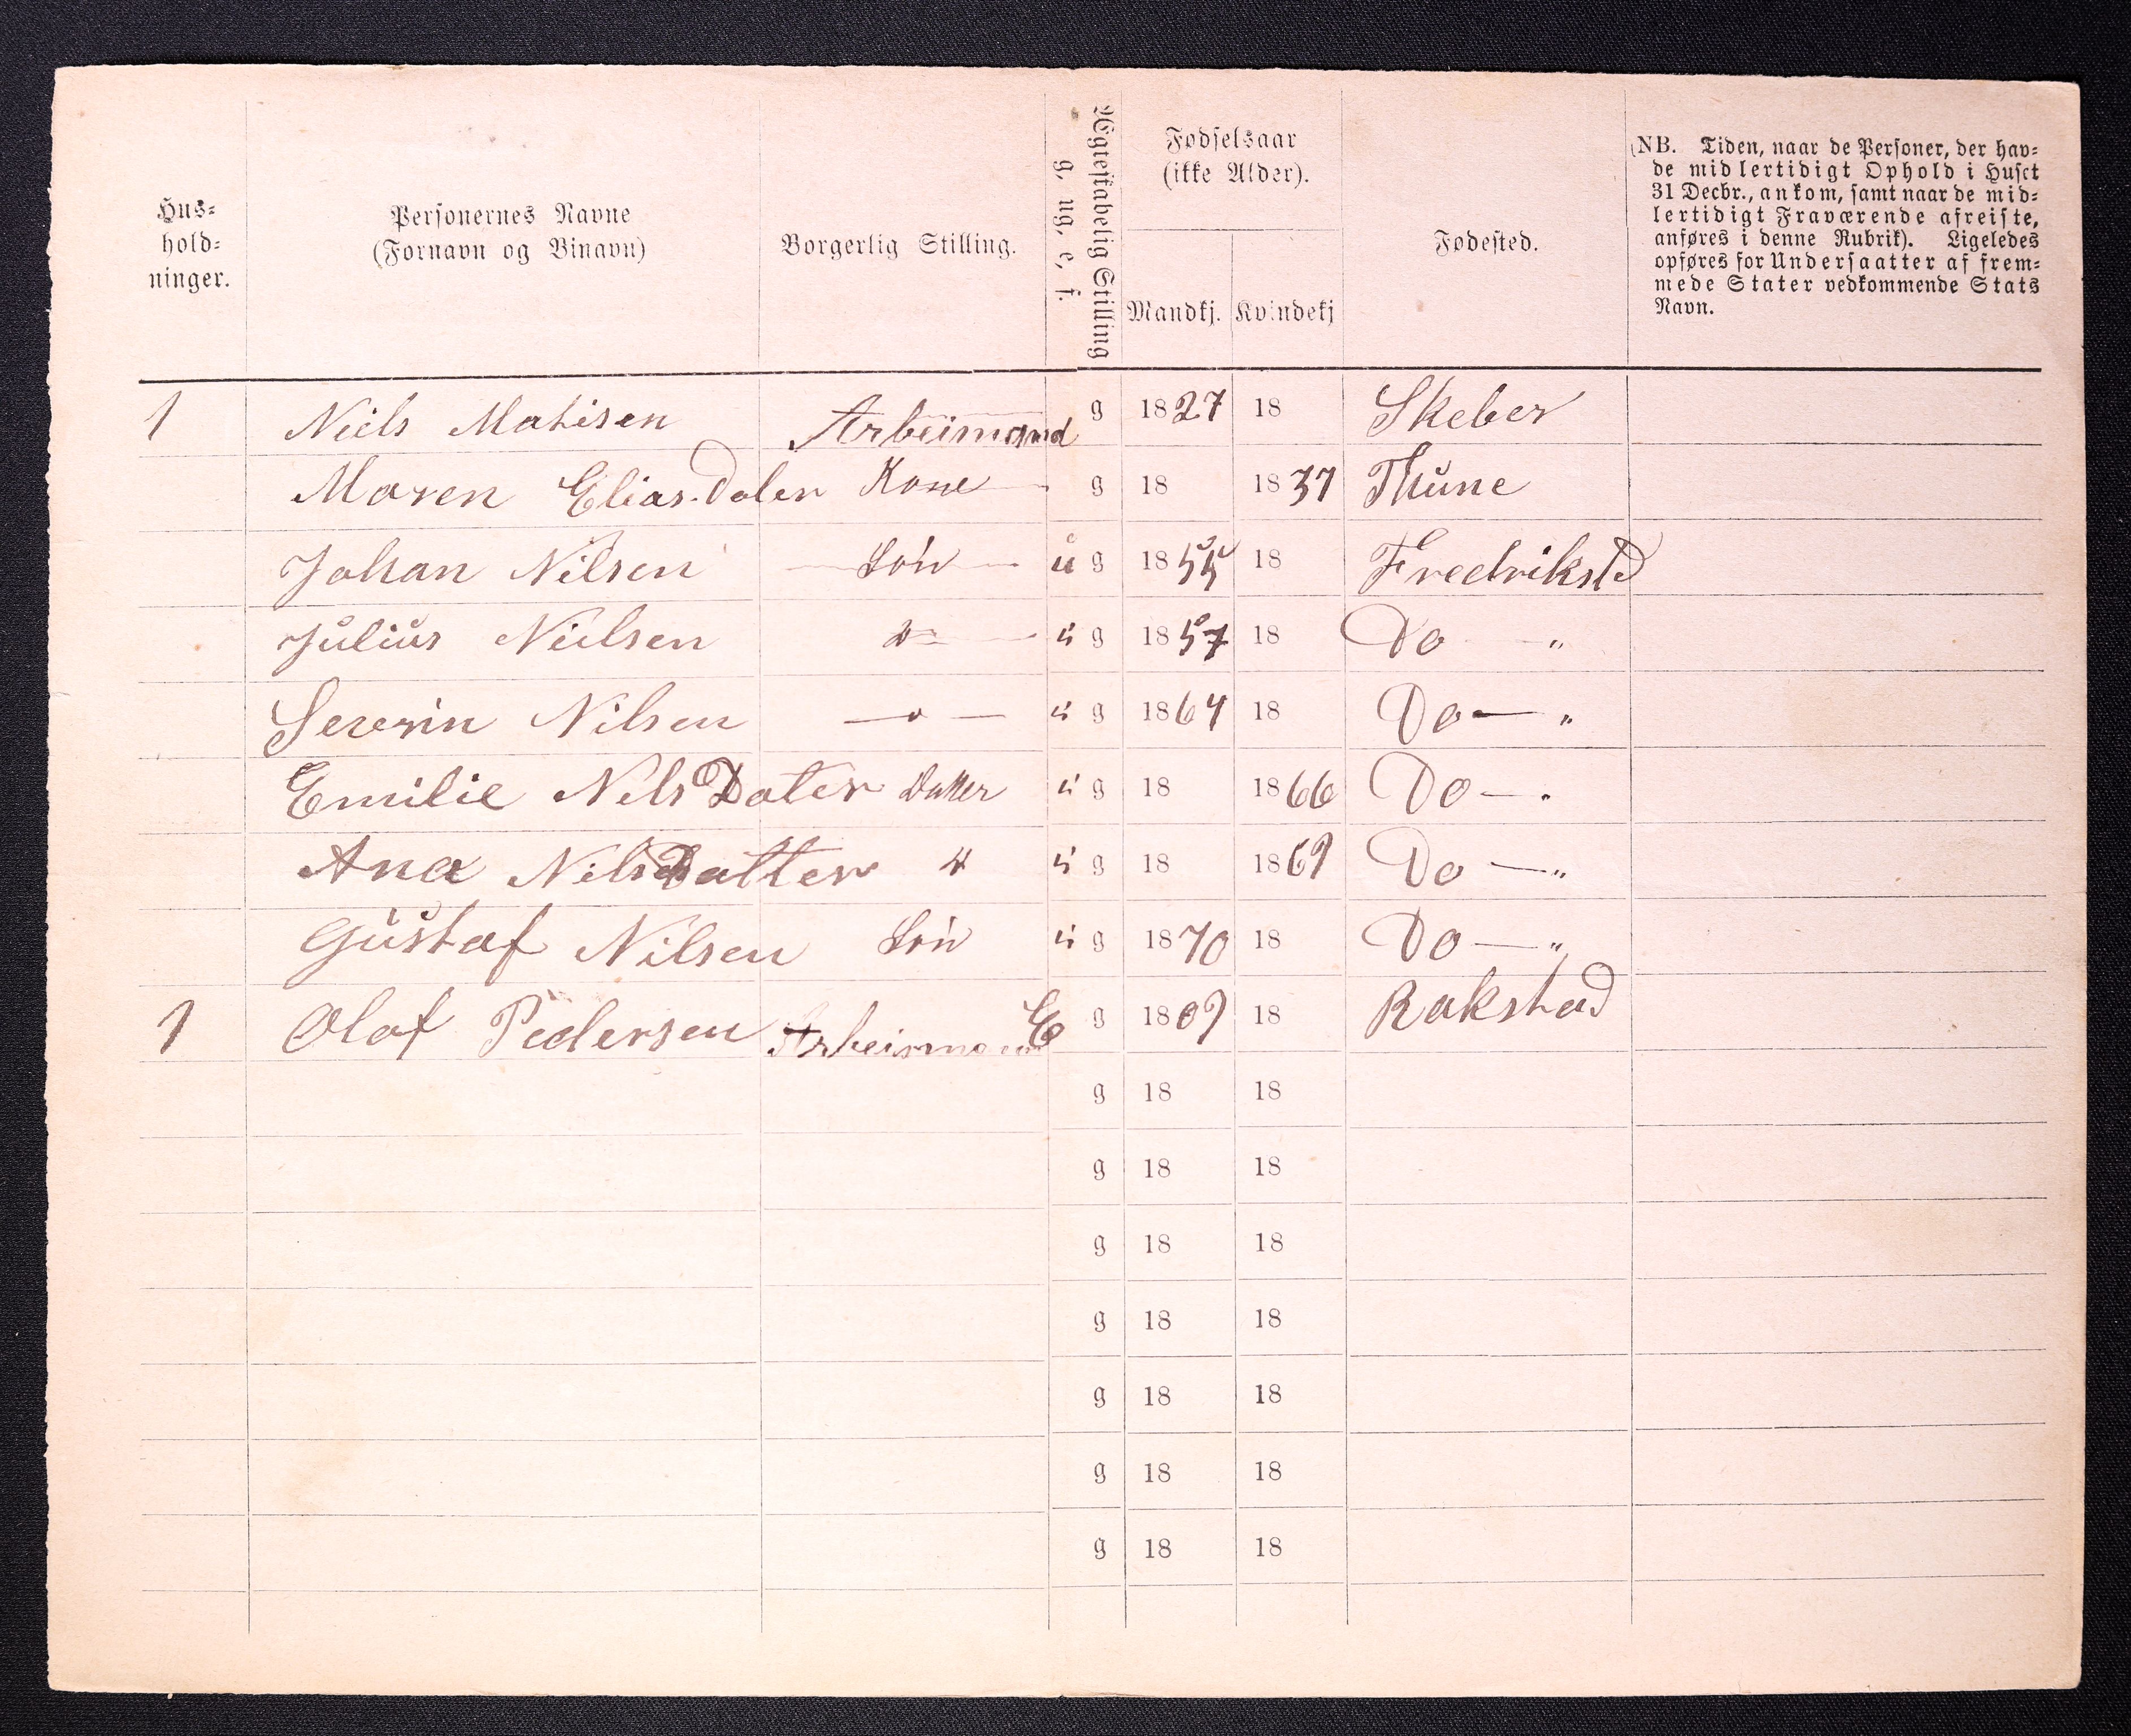 Hus-
hold-
ninger.
Personernes Navne
(Fornavn og Binavn)
Borgerlig Stilling.
Ægteskabelig Stilling
g, ug, e, f.
Fødselsaar
(ikke Alder).
Mandkj. Kvindekj
Fødested.
(NB. Tiden, naar de Personer, der hav-
de midlertidigt Ophold i Huset
31 Decbr., ankom, samt naar de mid-
lertidigt Fraværende afreiste,
anføres i denne Rubrik). Ligeledes
opføres for Undersaatter af frem-
mede Stater vedkommende Stats
Navn.
1 Niels Mathisen Arbeimand g 1827 18 Skeber
Maren Elias Dater Kone g 18 1837 Thune
Johan Nilsen Søn u g 1855 18 Fredrikstd
Julius Nielsen do u g 1857 18 Do "
Severin Nilsen — " — u g 1864 18 Do — "
Emilie Nels Dater Datter u g 18 1866 Do — "
Ana Nils Datter " u g 18 1869 Do — "
Gustaf Nilsen Søn u g 1870 18 Do — "
1 Olaf Pedersen Arbeismand E g 1809 18 Rakstad
g 18 18
g 18 18
g 18 18
g 18 18
g 18 18
g 18 18
g 18 18